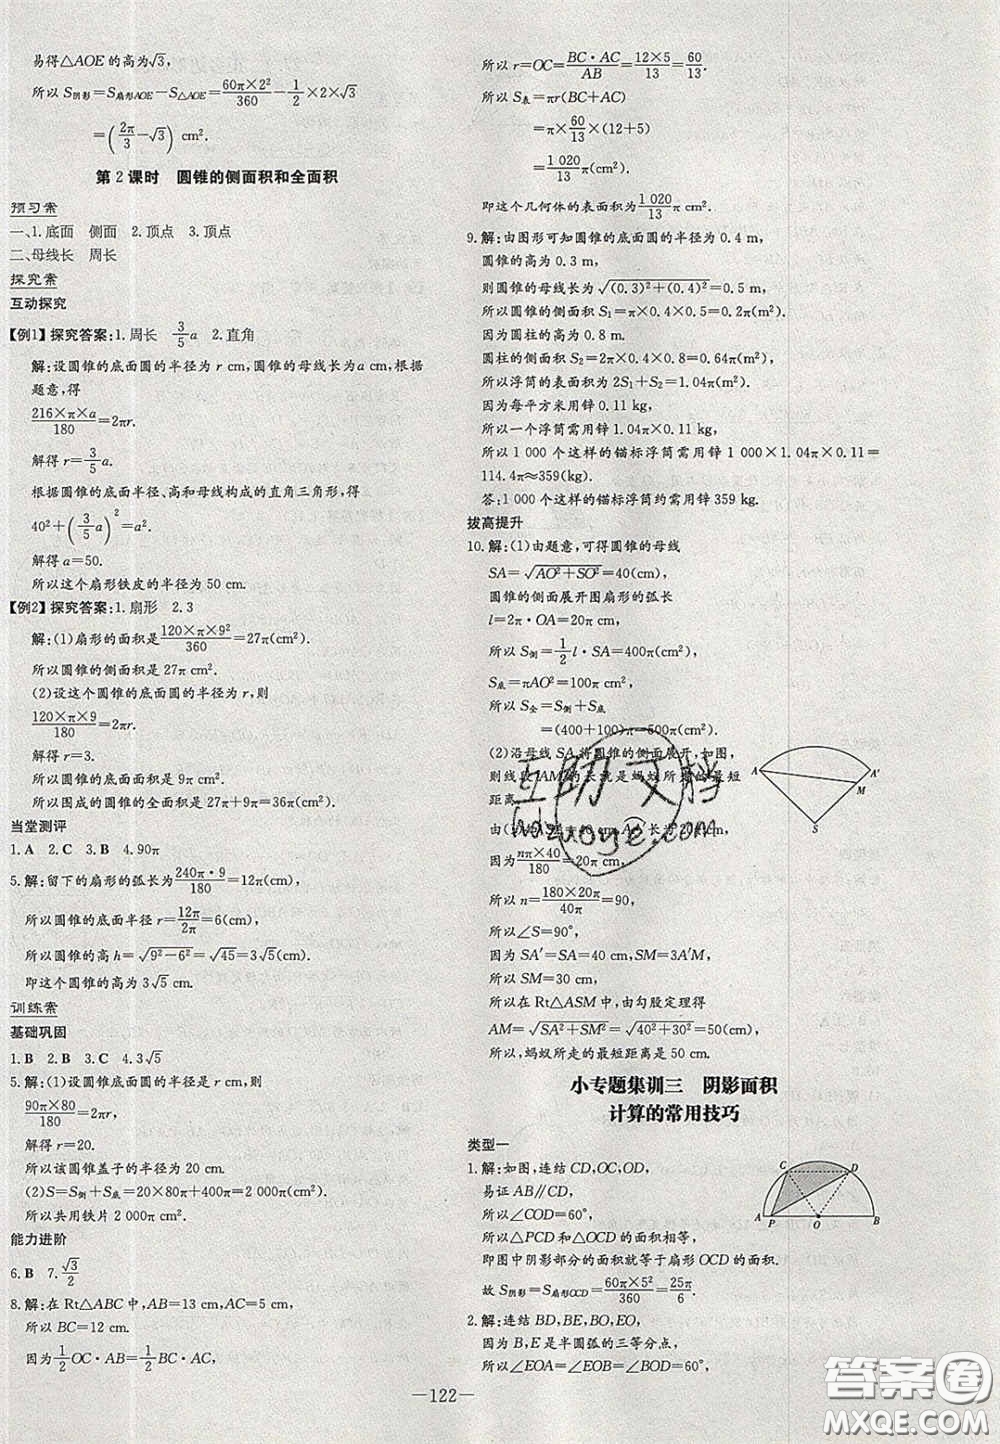 易得△AOE 的高为√3,
所以 S阴影=S扇形AOE−S△AOE=60π×2²/360−1/2×2×√3
=(2π/3−√3) cm².
第 2 课时 圆锥的侧面积和全面积
预习案
一、1.底面 侧面 2.顶点 3.顶点
二、母线长 周长
探究案
互动探究
【例1】探究答案:1.周长 3/5a 2.直角
解:设圆锥的底面圆的半径为 r cm,圆锥的母线长为a cm,根据
题意,得
216×π×a/180=2πr.
解得 r=3/5a.
根据圆锥的底面半径、高和母线构成的直角三角形,得
40²+(3/5a)²=a².
解得 a=50.
所以这个扇形铁皮的半径为 50 cm.
【例2】探究答案:1.扇形 2.3
解:(1)扇形的面积是120×π×9²/360=27π(cm²).
所以圆锥的侧面积是 27π cm².
(2)设这个圆锥的底面圆的半径为 r,则
120×π×9/180=2πr.
解得 r=3.
所以圆锥的底面面积是 9π cm².
所以围成的圆锥的全面积是 27π+9π=36π(cm²).
当堂测评
1.A 2.C 3.B 4.90π
5.解:留下的扇形的弧长为240π·9/180=12π(cm),
所以圆锥的底面半径 r=12π/2π=6(cm),
所以圆锥的高 h=√(9²−6²)=√45=3√5(cm).
即这个圆锥的高为 3√5 cm.
训练案
基础巩固
1.B 2.B 3.C 4.3√5
5.解:(1)设圆锥底面圆的半径为 r cm,则
90π×80/180=2πr,
解得 r=20.
所以该圆锥盖子的半径为 20 cm.
(2)S=S侧+S底=π×20×80+400π=2 000π(cm²).
所以共用铁片 2 000π cm².
能力进阶
6.B 7.√3/2
8.解:在 Rt△ABC 中,AB=13 cm,AC=5 cm,
所以 BC=12 cm.
因为1/2OC·AB=1/2BC·AC,
所以 r=OC=BC·AC/AB=12×5/13=60/13.
所以 S表=πr(BC+AC)
=π×60/13×(12+5)
=1 020/13π(cm²).
即这个几何体的表面积为1 020/13π cm².
9.解:由图形可知圆锥的底面圆的半径为 0.4 m,
圆锥的高为 0.3 m,
则圆锥的母线长为√((0.3)²+(0.4)²)=0.5 m.
所以圆锥的侧面积 S₁=π×0.4×0.5=0.2π(m²).
因为圆柱的高为 0.8 m.
圆柱的侧面积 S₂=2π×0.4×0.8=0.64π(m²).
所以浮筒的表面积为 2S₁+S₂=1.04π(m²).
因为每平方米用锌 0.11 kg,
所以一个浮筒需用锌 1.04π×0.11 kg,
所以 1 000 个这样的锚标浮筒需用锌 1 000×1.04π×0.11=
114.4π≈359(kg).
答:1 000 个这样的锚标浮筒约需用锌 359 kg.
拔高提升
10.解:(1)由题意,可得圆锥的母线
SA=√(AO²+SO²)=40(cm),
圆锥的侧面展开图扇形的弧长
l=2π·OA=20π cm,
所以 S侧=1/2l·SA=400π(cm²),
S底=πAO²=100π cm²,
所以 S全=S侧+S底
=(400+100)π=500π(cm²).
(2)沿母线 SA 将圆锥的侧面展开,如图,
则线段 AM 的长就是蚂蚁所走的最短
距离.
由(1)知,SA=40 cm,AA′长为 20π cm,
因为nπ×40/180=20π,
所以 n=180×20π/40π=90,
所以∠S=90°.
因为 SA′=SA=40 cm,SM=3A′M,
所以 SM=30 cm.
所以在 Rt△ASM 中,由勾股定理得
AM=√(SA²+SM²)=√(40²+30²)=50(cm).
所以,蚂蚁所走的最短距离是 50 cm.
A
A′
M
S
小专题集训三 阴影面积
计算的常用技巧
类型一
1.解:如图,连结 CD,OC,OD,
易证 AB∥CD,
所以∠COD=60°,
所以△PCD 和△OCD 的面积相等,
即图中阴影部分的面积就等于扇形 OCD 的面积.
故 S阴影=S扇形OCD=60π×5²/360=25π/6.
C D
A P O B
2.解:连结 BD,BE,BO,EO,
因为 B,E 是半圆弧的三等分点,
所以∠EOA=∠EOB=∠BOD=60°,
—122—
互助文档
hdzuoye.com
答案圈
MXQE.COM